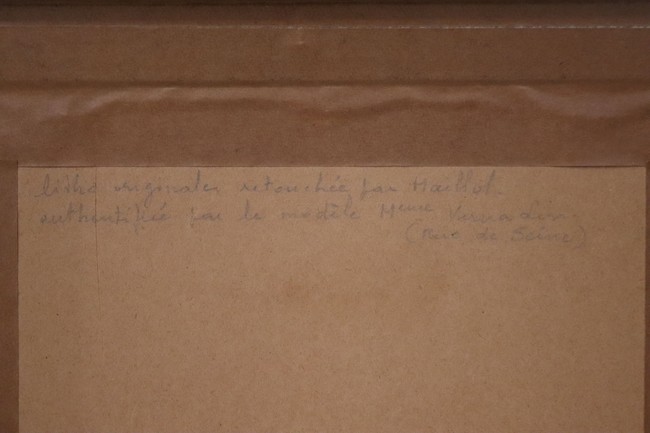 litho originales retouchée par Maillol.
authentifiée par le modèle Meme
(Rue de Seine)